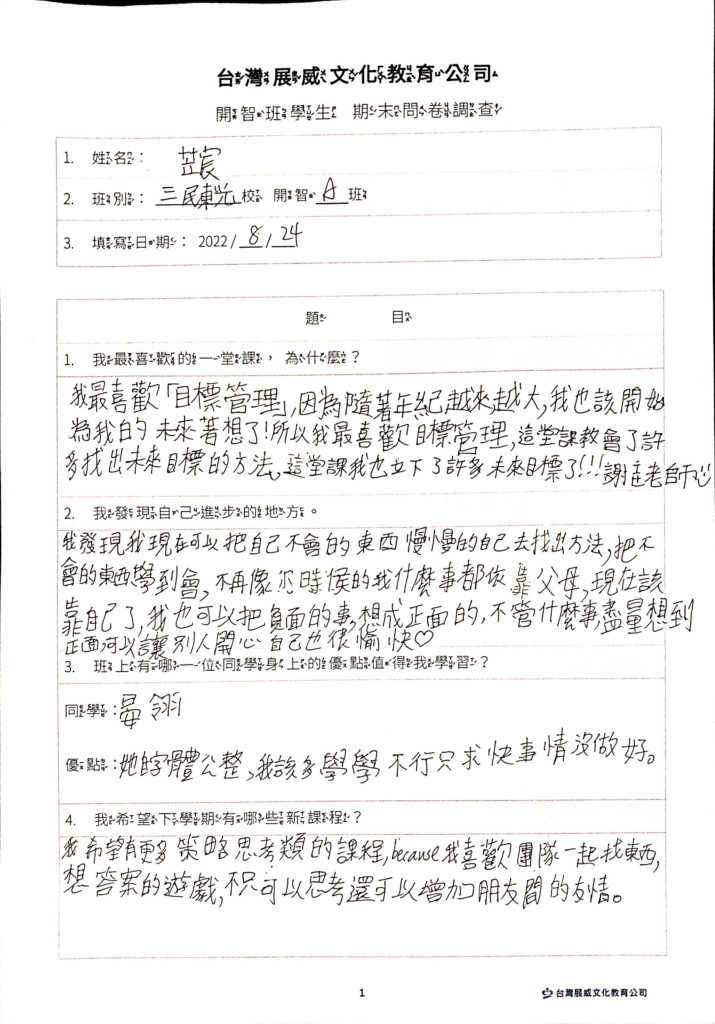 台灣展威文化教育公司
開智班學生 期末問卷調查
1. 姓名： 苙宸
2. 班別： 三民東光校 開智 A 班
3. 填寫日期： 2022 / 8 / 24
題 目
1. 我最喜歡的一堂課， 為什麼？
我最喜歡「目標管理」,因為隨著年紀越來越大,我也該開始
為我的未來著想了!所以我最喜歡目標管理,這堂課教會了許
多找出未來目標的方法,這堂課我也立下了許多未來目標了!!!謝謹老師心
2. 我發現自己進步的地方。
我發現我現在可以把自己不會的東西慢慢的自己去找出方法,把不
會的東西學到會,不再像小時候的我什麼事都依靠父母,現在該
靠自己了,我也可以把負面的事,想成正面的,不管什麼事,盡量想到
正面,可以讓別人開心自己也很愉快♡
3. 班上有哪一位同學身上的優點值得我學習？
同學：晏翎
優點：她的字體公整,我該多學學不行只求快事情沒做好。
4. 我希望下學期有哪些新課程？
我希望有更多策略思考類的課程,because我喜歡團隊一起找東西,
想答案的遊戲,不只可以思考還可以增加朋友間的友情。
1
台灣展威文化教育公司